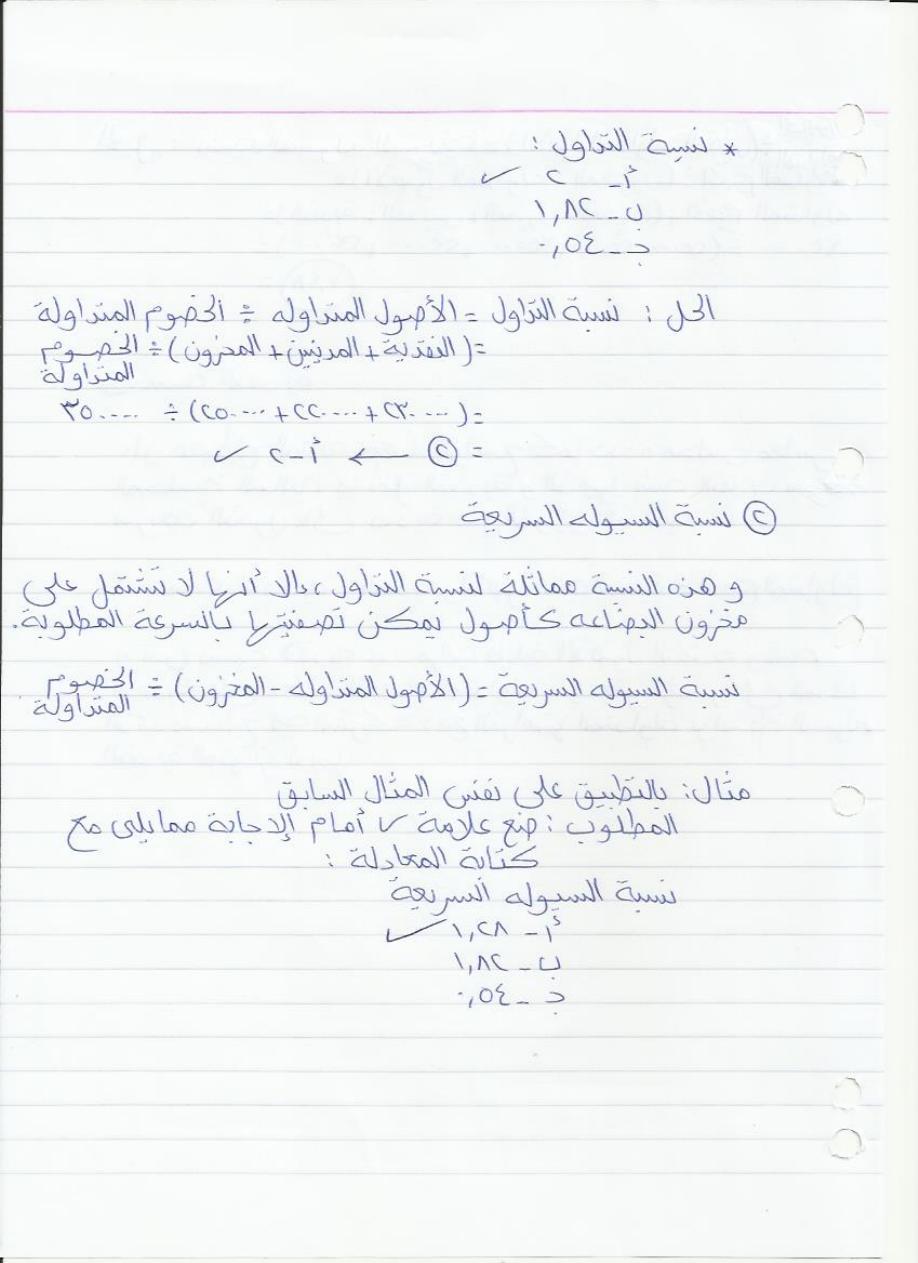 * نسبة التداول :
أ - ٢ ✓
ب - ١,٨٢
جـ - ٠,٥٤
الحل : نسبة التداول = الأصول المتداوله ÷ الخصوم المتداولة
= ( النقدية + المدينين + المخزون ) ÷ الخصوم المتداولة
= ( ٢٣٠٠٠٠ + ٢٢٠٠٠٠ + ٢٥٠٠٠٠ ) ÷ ٣٥٠٠٠٠
= ٢ ← أ - ٢ ✓
٢ نسبة السيوله السريعة
و هذه النسبة مماثلة لنسبة التداول ، إلا أنها لا تشتمل على
مخزون البضاعه كأصول يمكن تصفيتها بالسرعة المطلوبة.
نسبة السيوله السريعة = ( الأصول المتداوله - المخزون ) ÷ الخصوم المتداولة
مثال : بالتطبيق على نفس المثال السابق
المطلوب : ضع علامة ✓ أمام الإجابة ممايلى مع
كتابة المعادلة :
نسبة السيوله السريعة
أ - ١,٢٨ ✓
ب - ١,٨٢
جـ - ٠,٥٤